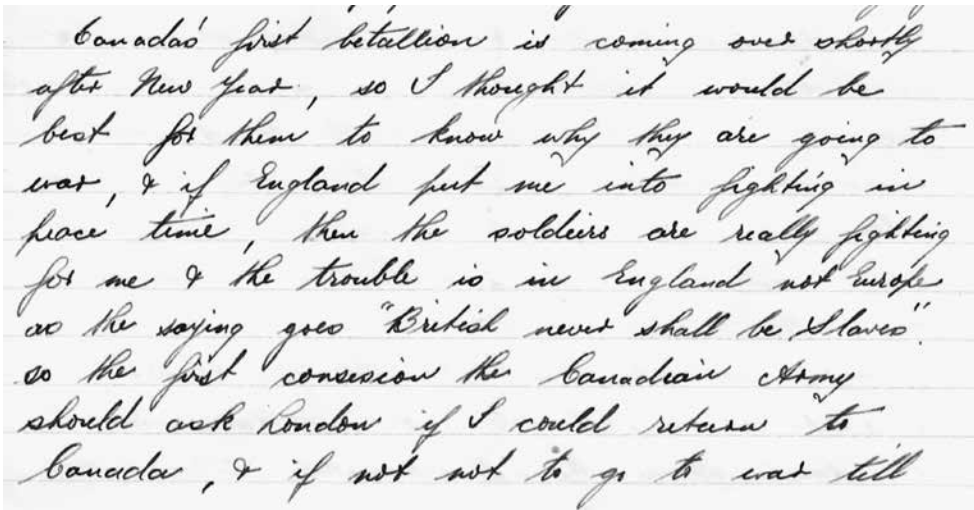 Canada's first betallion is coming over shortly
after New Year, so I thought it would be
best for them to know why they are going to
war, & if England put me into fighting in
peace time, then the soldeirs are really fighting
for me & the trouble is in England not Europe
as the saying goes "British never shall be Slaves".
so the first consesion the Canadian Army
should ask London if I could return to
Canada, & if not not to go to war till